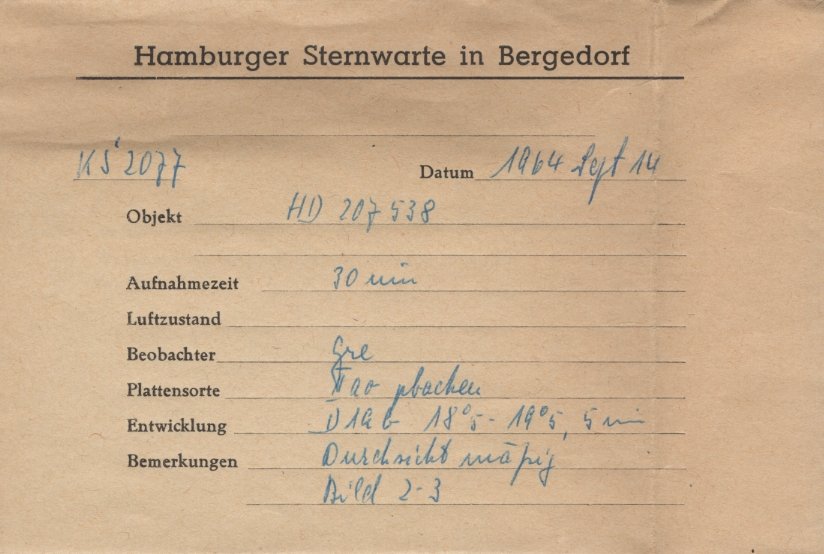 Hamburger Sternwarte in Bergedorf
KS 2077 Datum 1964 Sept 14
Objekt HD 207538
Aufnahmezeit 30 min
Luftzustand
Beobachter Gre
Plattensorte IIaO gbacken
Entwicklung D19b 18°5 - 19°5, 5 min
Bemerkungen Durchsicht mäßig
Bild 2-3